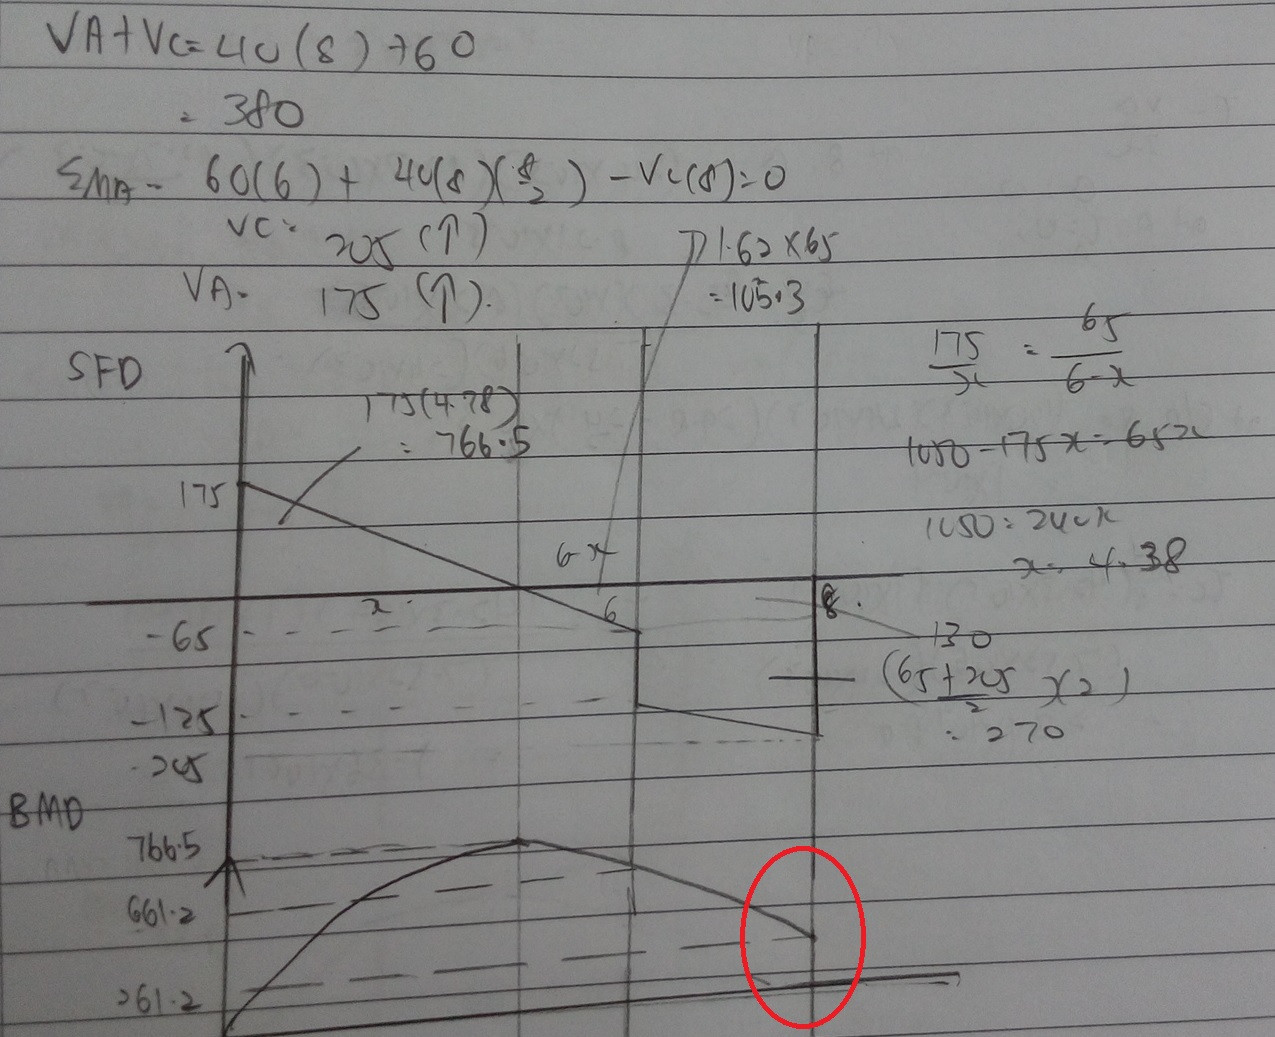 VA+VC=40(8)+60
= 380
ΣMA= 60(6)+40(8)(8/2)-VC(8)=0
VC= 205 (↑)
VA= 175 (↑).
1.62×65
=105.3
SFD
175/x = 65/6-x
175(4.38)
= 766.5
1050-175x=65x
175
1050=240x
6-x
x=4.38
x.
6
8.
-65
130
(65+205/2)(2)
= 270
-125
-205
BMD
766.5
661.2
261.2